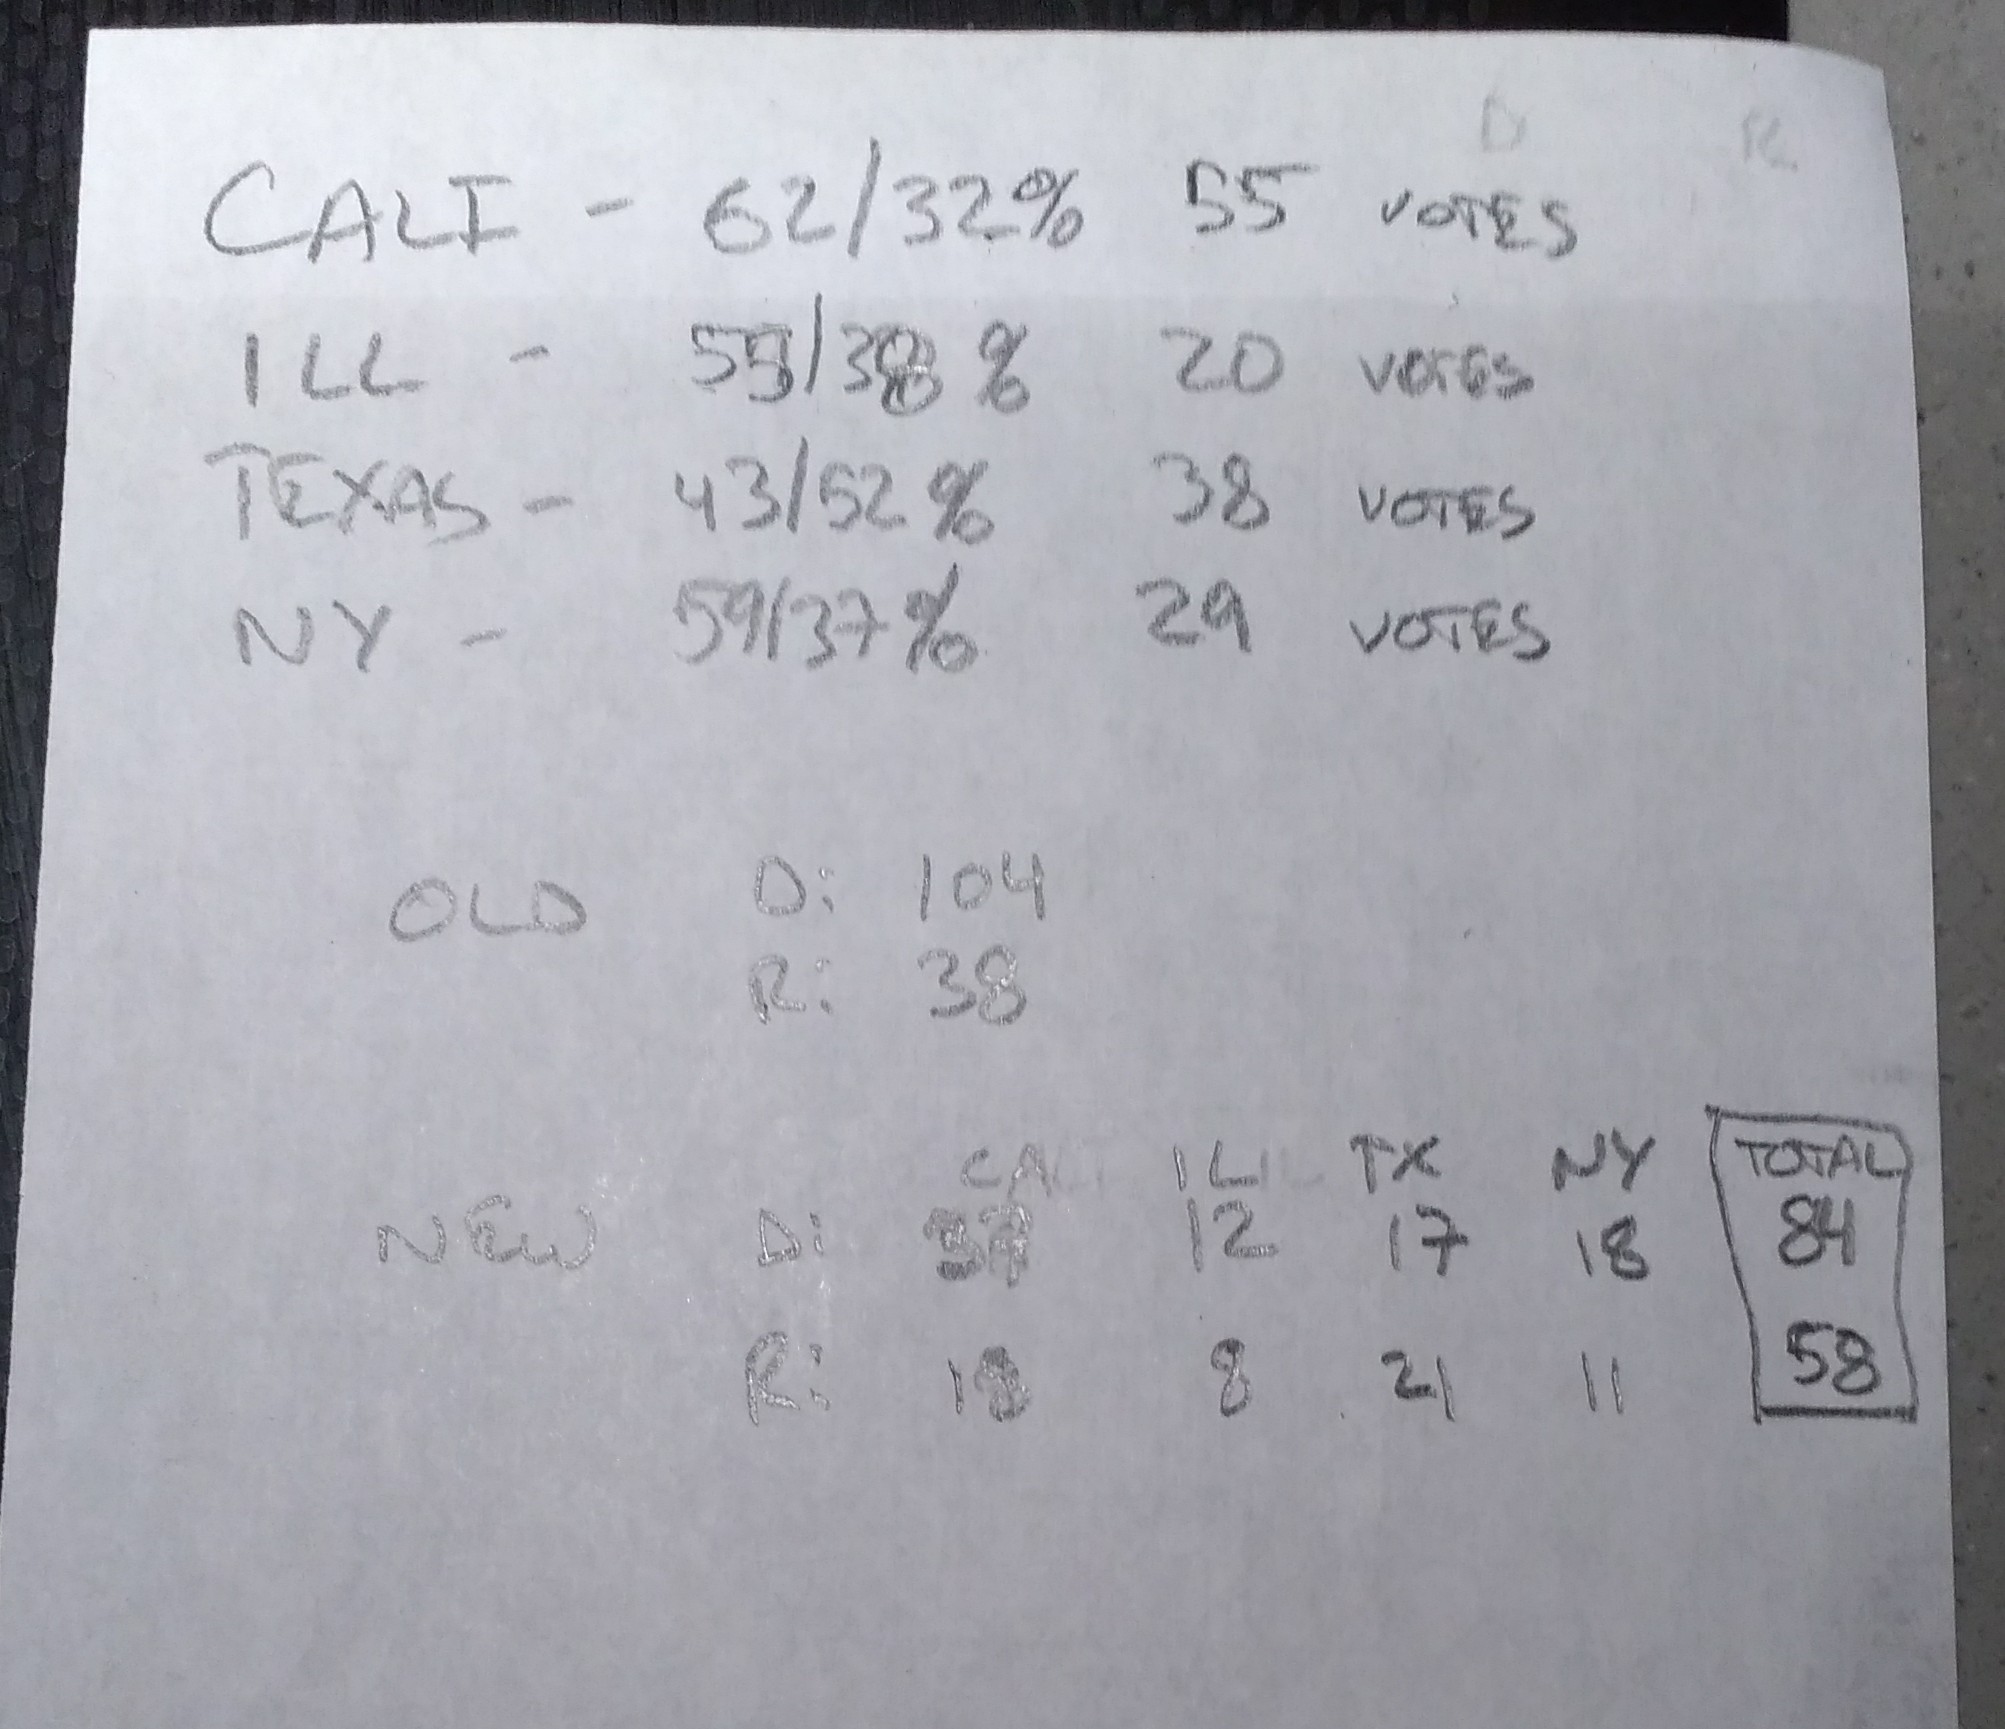 D R
CALI - 62/32% 55 VOTES
ILL - 55/38% 20 VOTES
TEXAS - 43/52% 38 VOTES
NY - 59/37% 29 VOTES
OLD D: 104
R: 38
CA IL TX NY TOTAL
NEW D: 37 12 17 18 84
R: 18 8 21 11 58